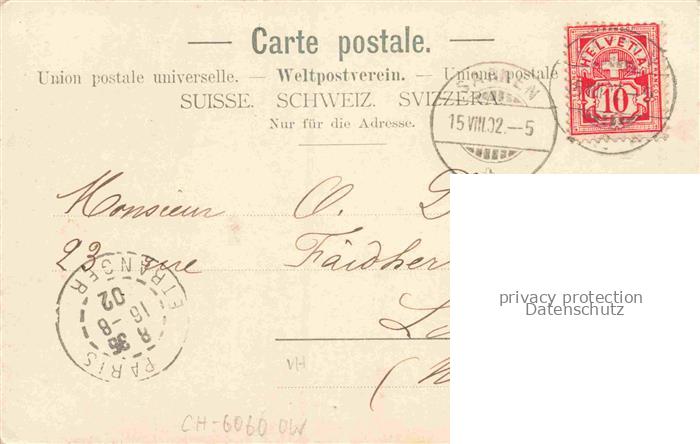 Carte postale.
Union postale universelle. — Weltpostverein. — Unione postale
SUISSE. SCHWEIZ. SVIZZERA.
Nur für die Adresse.
HELVETIA
10
15.VIII.02.–5
Monsieur O. D
23 rue Faidher
PARIS ETRANGER
8 16
02
VH
CH-6060 OW
privacy protection
Datenschutz